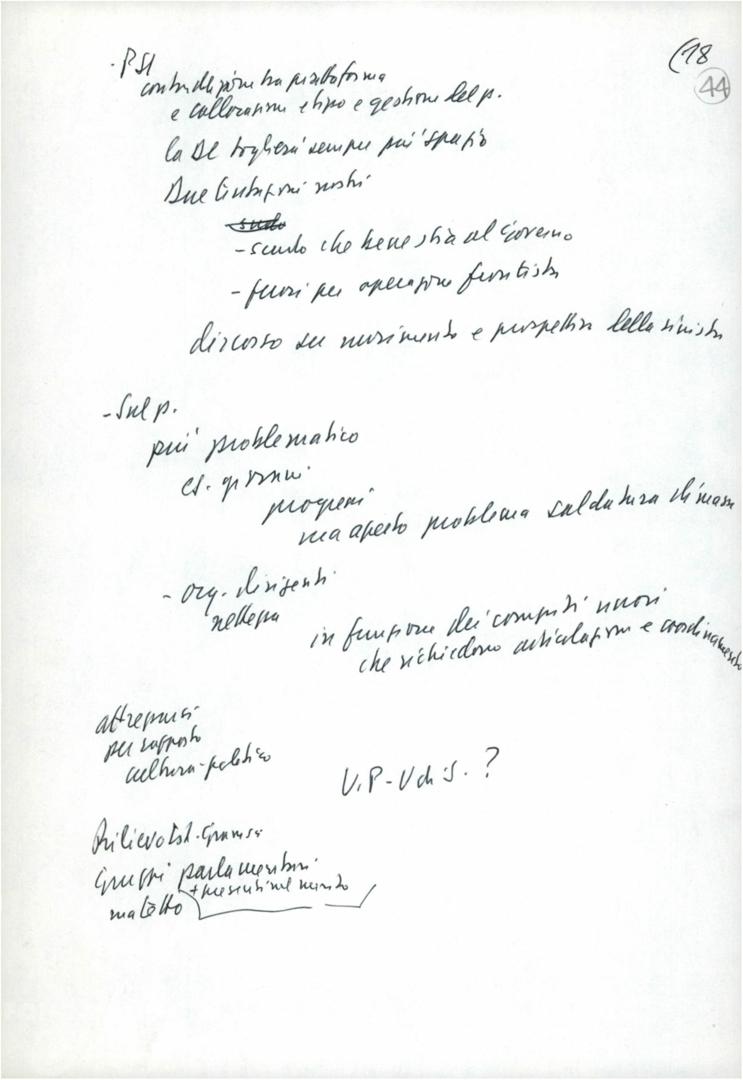 (18
44
- PSI
contraddizione tra piattaforma
e collocazione e tipo e gestione del p.
la DC toglierà sempre più spazio
Due tentazioni nostri
scudo
- scudo che bene stia al Governo
- fuori per operazione frontista
discorso su movimento e prospettiva della sinistra
- Sul p.
più problematico
es. giovani
progressi
ma aperto problema saldatura di massa
- org. dirigenti
in funzione dei compiti nuovi
che richiedono articolazione e coordinamento
attrezzarsi
per rapporto
cultura-politica
U.P - U di S. ?
Rilievo Ist. Gramsci
Gruppi parlamentari
+ presenti nel mondo